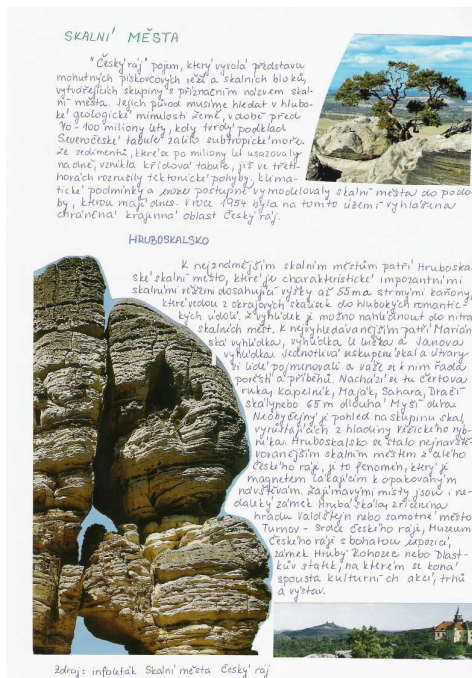 SKALNÍ MĚSTA
"Český ráj" pojem, který vyvolá představu
mohutných pískovcových věží a skalních bloků,
vytvářejících skupiny s příznačným názvem skal-
ní města. Jejich původ musíme hledat v hlubo-
ké geologické minulosti Země, v době před
70-100 miliony lety, kdy tvrdý podklad
Severočeské tabule zalilo subtropické moře.
Ze sedimentů, které se po miliony let usazovaly
na dně, vznikla křídová tabule, již ve třeti-
horách rozrušily tektonické pohyby. Klima-
tické podmínky a eroze postupně vymodelovaly skalní města do podo-
by, kterou mají dnes. V roce 1954 byla na tomto území vyhlášena
chráněná krajinná oblast Český ráj.
HRUBOSKALSKO
K nejznámějším skalním městům patří Hruboskal-
ské skalní město, které je charakteristické impozantními
skalními věžemi dosahující výšky až 55m a strmými kaňony,
které vedou z okrajových skalisek do hlubokých romantic-
kých údolí. Z vyhlídek je možno nahlédnout do nitra
skalních měst. K nejvyhledávanějším patří Marián-
ská vyhlídka, vyhlídka U lvíčka a Janova
vyhlídka. Jednotlivá seskupení skal a útvary
si lidé pojmenovali a váže se k nim řada
pověstí a příběhů. Nachází se tu Čertova
ruka, Kapelník, Maják, Sahara, Dračí
skály nebo 65 m dlouhá Myší díra.
Neobyčejný je pohled na skupinu skal,
vyrůstajících z hladiny Věžického ryb-
níka. Hruboskalsko se stalo nejnavště-
vovanějším skalním městem z celého
Českého ráje, je to fenomén, který je
magnetem lákajícím k opakovaným
návštěvám. Zajímavými místy jsou i ne-
daleký zámek Hrubá skála, zřícenina
hradu Valdštejn nebo samotné město
Turnov - Srdce Českého ráje, Muzeum
Českého ráje s bohatou expozicí,
zámek Hrubý Rohozec nebo Dlask-
kův statek, na kterém se koná
spousta kulturních akcí, trhů
a výstav.
Zdroj: infoleták Skalní města Český ráj